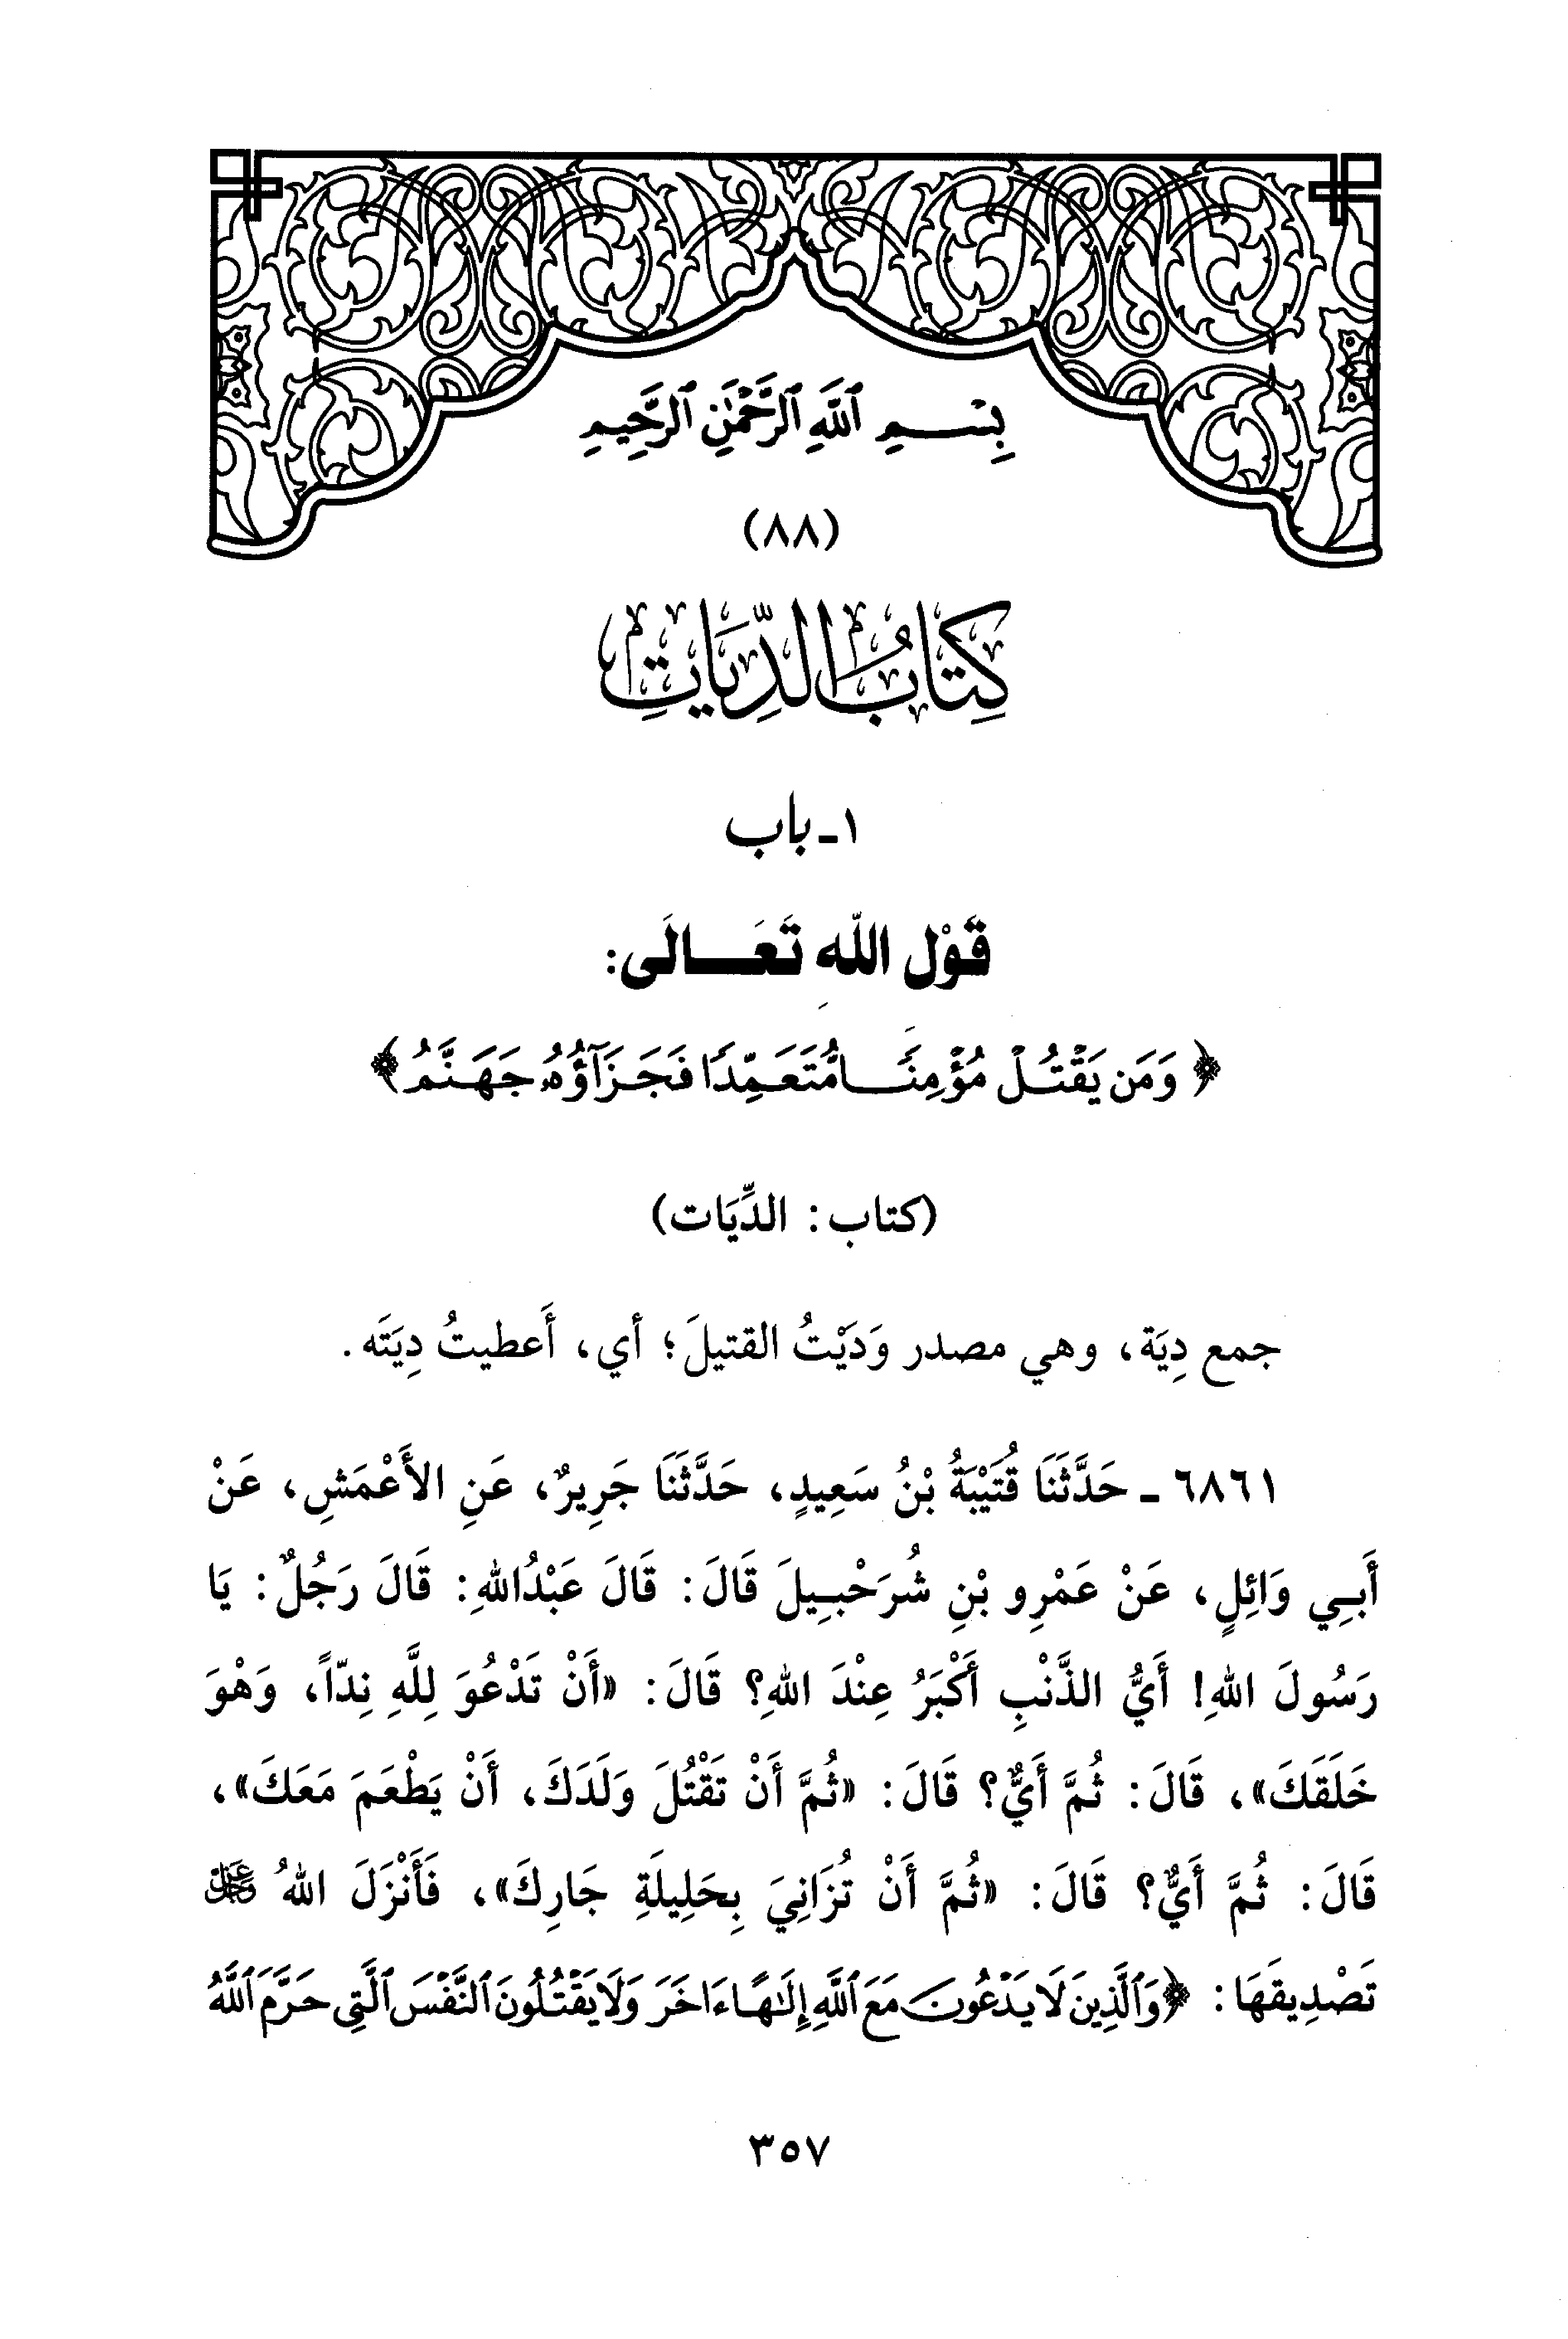 بِسْمِ ٱللَّهِ ٱلرَّحْمَٰنِ ٱلرَّحِيمِ
(٨٨)
كِتَابُ الدِّيَاتِ
١ـ باب
قَوْل الله تَعَالَى:
﴿ وَمَن يَقْتُلْ مُؤْمِنًا مُّتَعَمِّدًا فَجَزَآؤُهُۥ جَهَنَّمُ ﴾
(كتاب: الدِّيَات)
جمع دِيَة، وهي مصدر وَدَيْتُ القتيلَ؛ أي، أَعطيتُ دِيَتَه.
٦٨٦١ ـ حَدَّثَنَا قُتَيْبَةُ بْنُ سَعِيدٍ، حَدَّثَنَا جَرِيرٌ، عَنِ الأَعْمَشِ، عَنْ
أَبِي وَائِلٍ، عَنْ عَمْرِو بْنِ شُرَحْبِيلَ قَالَ: قَالَ عَبْدُاللهِ: قَالَ رَجُلٌ: يَا
رَسُولَ اللهِ! أَيُّ الذَّنْبِ أَكْبَرُ عِنْدَ اللهِ؟ قَالَ: «أَنْ تَدْعُوَ لِلَّهِ نِدّاً، وَهْوَ
خَلَقَكَ»، قَالَ: ثُمَّ أَيٌّ؟ قَالَ: «ثُمَّ أَنْ تَقْتُلَ وَلَدَكَ، أَنْ يَطْعَمَ مَعَكَ»،
قَالَ: ثُمَّ أَيٌّ؟ قَالَ: «ثُمَّ أَنْ تُزَانِيَ بِحَلِيلَةِ جَارِكَ»، فَأَنْزَلَ اللهُ عَزَّ وَجَلَّ
تَصْدِيقَهَا: ﴿وَٱلَّذِينَ لَا يَدْعُونَ مَعَ ٱللَّهِ إِلَٰهًا ءَاخَرَ وَلَا يَقْتُلُونَ ٱلنَّفْسَ ٱلَّتِى حَرَّمَ ٱللَّهُ
٣٥٧